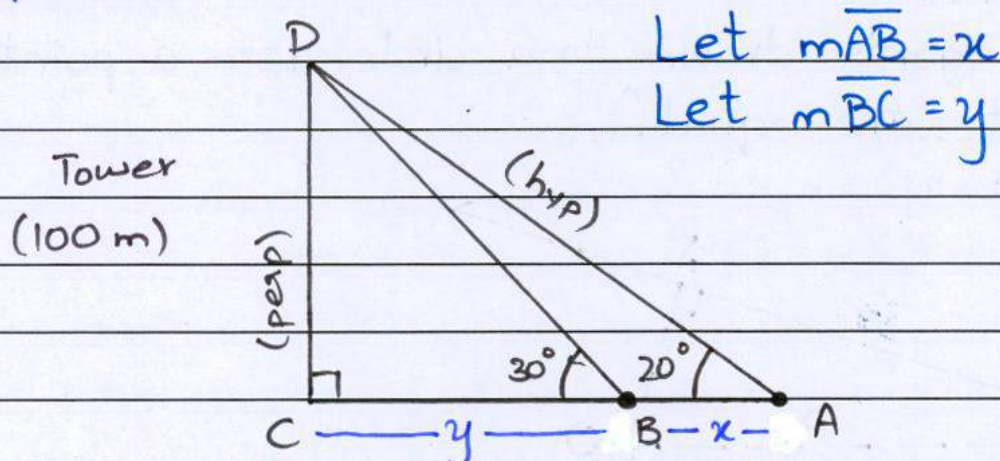 D
Let mAB = x
Let mBC = y
Tower
(100 m)
(hyp)
(perp)
30°
20°
C y B x A